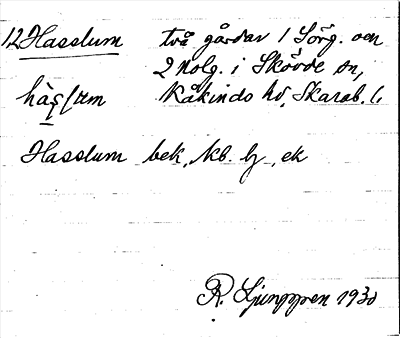 12 Hasslum två gårdar 1 Sörg. och
2 Nolg. i Skövde sn,
Kåkinds hd, Skarab. l.
Hasslum bek, kb. lj, ek
R. Ljunggren 1930